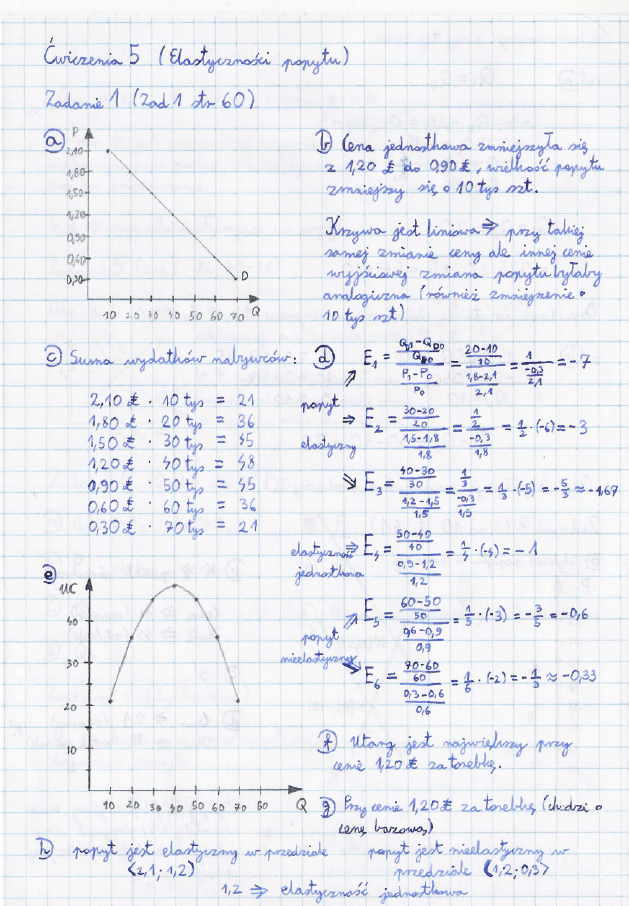 Ćwiczenia 5 (Elastyczności popytu)
Zadanie 1 (Zad 1 str 60)
a
P
2,10
1,80
1,50
1,20
0,90
0,60
0,30
D
10 20 30 40 50 60 70 Q
b Cena jednostkowa zmniejszyła się
z 1,20 zł do 0,90 zł, wielkość popytu
zmniejszy się o 10 tys szt.
Krzywa jest liniowa ⇒ przy takiej
samej zmianie ceny ale innej cenie
wyjściowej zmiana popytu byłaby
analogiczna (również zmniejszenie o
10 tys szt)
c Suma wydatków nabywców:
2,10 zł · 10 tys = 21
1,80 zł · 20 tys = 36
1,50 zł · 30 tys = 45
1,20 zł · 40 tys = 48
0,90 zł · 50 tys = 45
0,60 zł · 60 tys = 36
0,30 zł · 70 tys = 21
d
popyt
elastyczny
E1 = ((Q1-Q0)/Q0)/((P1-P0)/P0) = ((20-10)/10)/((1,8-2,1)/2,1) = 1/(-0,3/2,1) = -7
E2 = ((30-20)/20)/((1,5-1,8)/1,8) = (1/2)/(-0,3/1,8) = 1/2 · (-6) = -3
E3 = ((40-30)/30)/((1,2-1,5)/1,5) = (1/3)/(-0,3/1,5) = 1/3 · (-5) = -5/3 ≈ -1,67
elastyczność
jednostkowa
⇒ E4 = ((50-40)/40)/((0,9-1,2)/1,2) = 1/4 · (-4) = -1
popyt
nieelastyczny
E5 = ((60-50)/50)/((0,6-0,9)/0,9) = 1/5 · (-3) = -3/5 = -0,6
E6 = ((70-60)/60)/((0,3-0,6)/0,6) = 1/6 · (-2) = -1/3 ≈ -0,33
e
UC
40
30
20
10
10 20 30 40 50 60 70 80 Q
f Utarg jest największy przy
cenie 1,20 zł za torebkę.
g Przy cenie 1,20 zł za torebkę (chodzi o
cenę bazową)
h popyt jest elastyczny w przedziale
<2,1; 1,2)
popyt jest nieelastyczny w
przedziale (1,2; 0,3>
1,2 ⇒ elastyczność jednostkowa